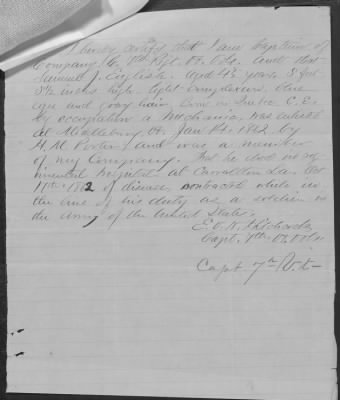 I hereby certify that I am Captain of
Company G. 8th Rgt. Vt. Vols. and that
Samuel J. English. Aged 43 years 5 feet
8½ inches high. light complexion, blue
eyes and gray hair, born in C. E.
by occupation a Mechanic, was enlisted
at Vt. Jan 14. 1862. by
H. M. Porter, and was a member
of my Company. That he died in regimental
hospital at Carrollton La. Oct
17th 1862 of disease contracted while in
the line of his duty as a soldier in
the Army of the United States.
Capt. 8th Vt Vols
Capt 7th Vt